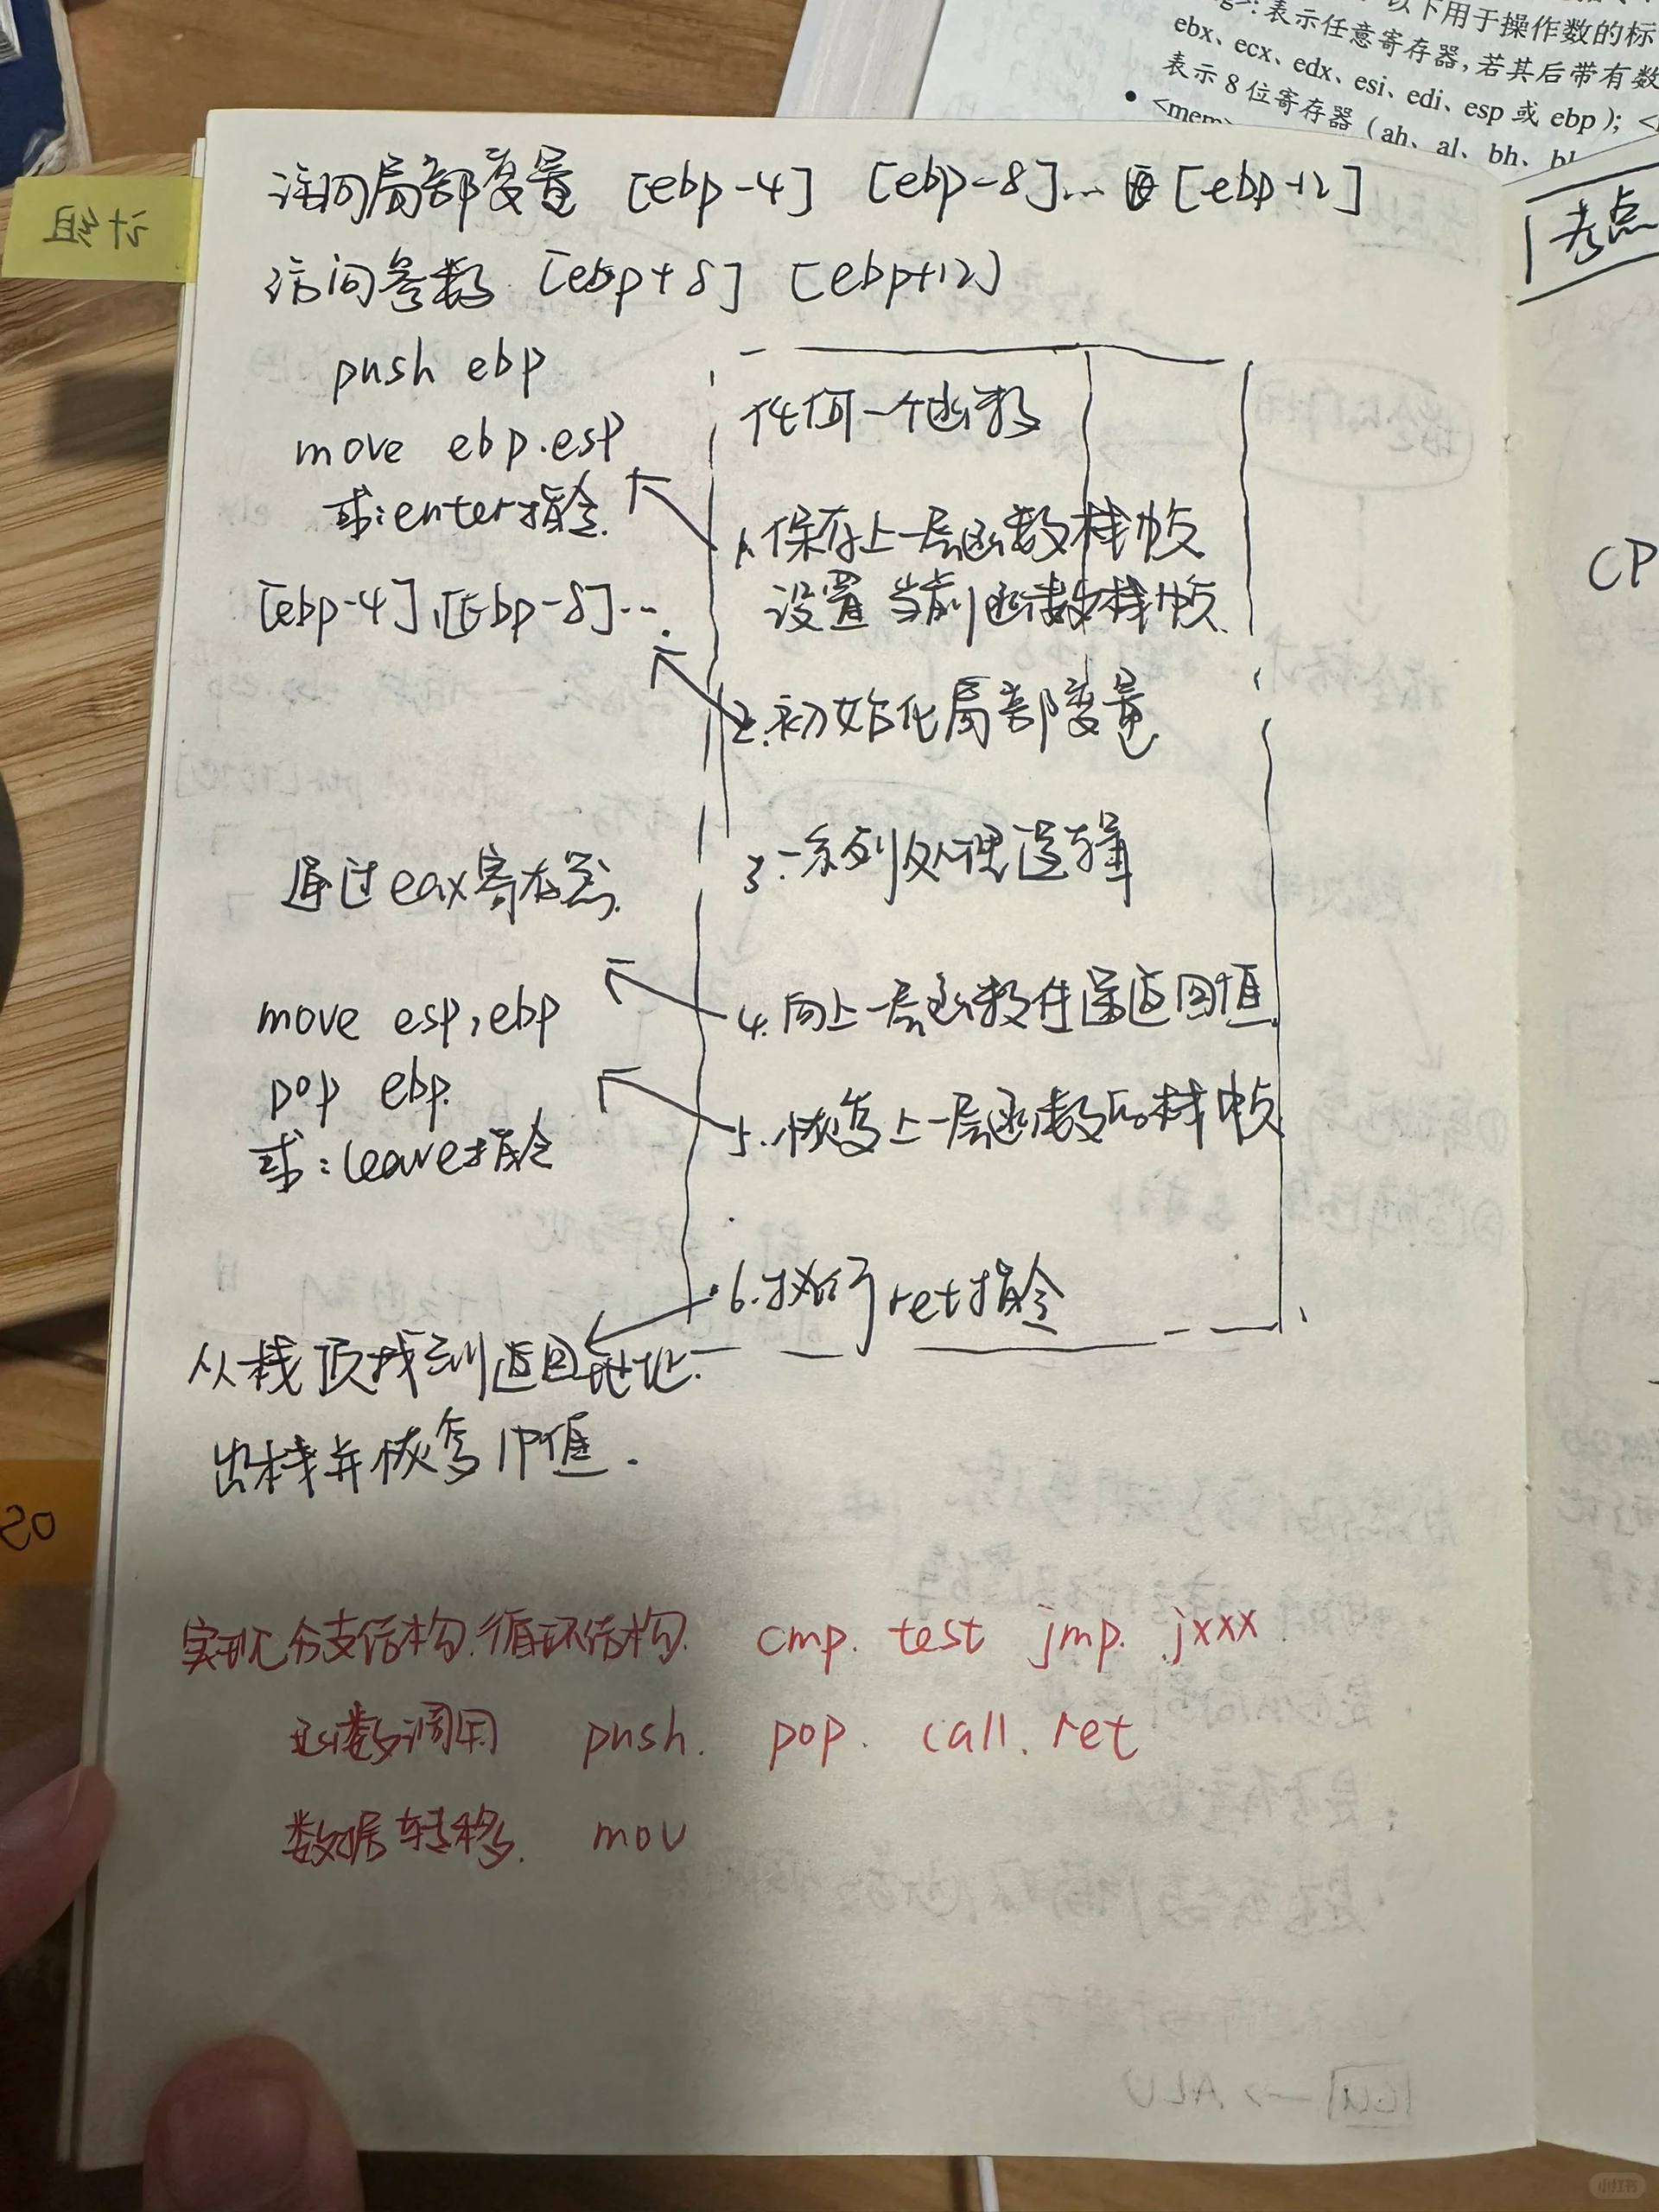 以下用于操作数的标
表示任意寄存器,若其后带有数
ebx、ecx、edx、esi、edi、esp 或 ebp);
表示 8 位寄存器(ah、al、bh、
• <mem>
计组
考点
访问局部变量 [ebp-4] [ebp-8]... [ebp-12]
访问参数 [ebp+8] [ebp+12]
push ebp
move ebp.esp
或:enter指令.
[ebp-4]、[ebp-8]...
任何一个函数
1.保存上一层函数栈帧
设置当前函数栈帧.
2.初始化局部变量
3.一系列处理逻辑
通过eax寄存器.
4.向上一层函数传递返回值.
move esp,ebp
pop ebp.
或:leave指令
5.恢复上一层函数的栈帧
6.执行ret指令
从栈顶找到返回地址.
出栈并恢复IP值.
实现分支结构.循环结构. cmp. test jmp. jxxx
函数调用 push. pop. call. ret
数据转移. mov
CP
小红书